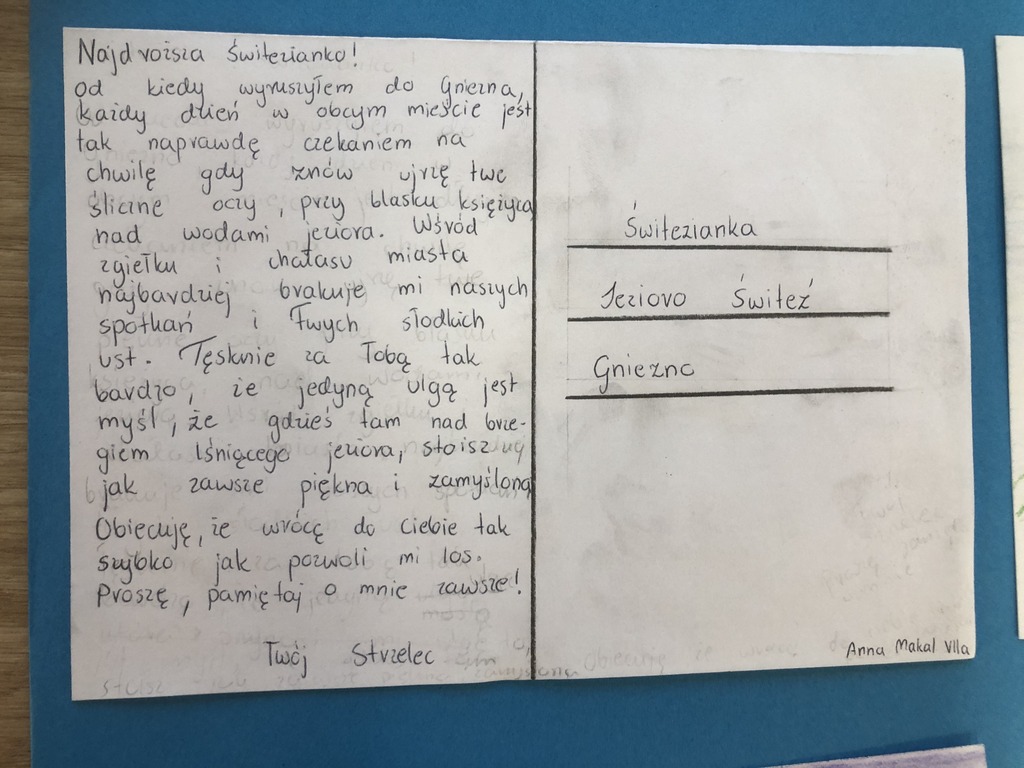 Najdroższa Świtezianko!
Od kiedy wyruszyłem do Gniezna,
każdy dzień w obcym mieście jest
tak naprawdę czekaniem na
chwilę gdy znów ujrzę twe
śliczne oczy, przy blasku księżyca
nad wodami jeziora. Wśród
zgiełku i hałasu miasta
najbardziej brakuje mi naszych
spotkań i Twych słodkich
ust. Tęsknie za Tobą tak
bardzo, że jedyną ulgą jest
myśl, że gdzieś tam nad brze-
giem lśniącego jeziora, stoisz
jak zawsze piękna i zamyślona
Obiecuję, że wrócę do Ciebie tak
szybko jak pozwoli mi los.
Proszę, pamiętaj o mnie zawsze!
Twój Strzelec
Świtezianka
Jezioro Świteź
Gniezno
Anna Makal VIIa